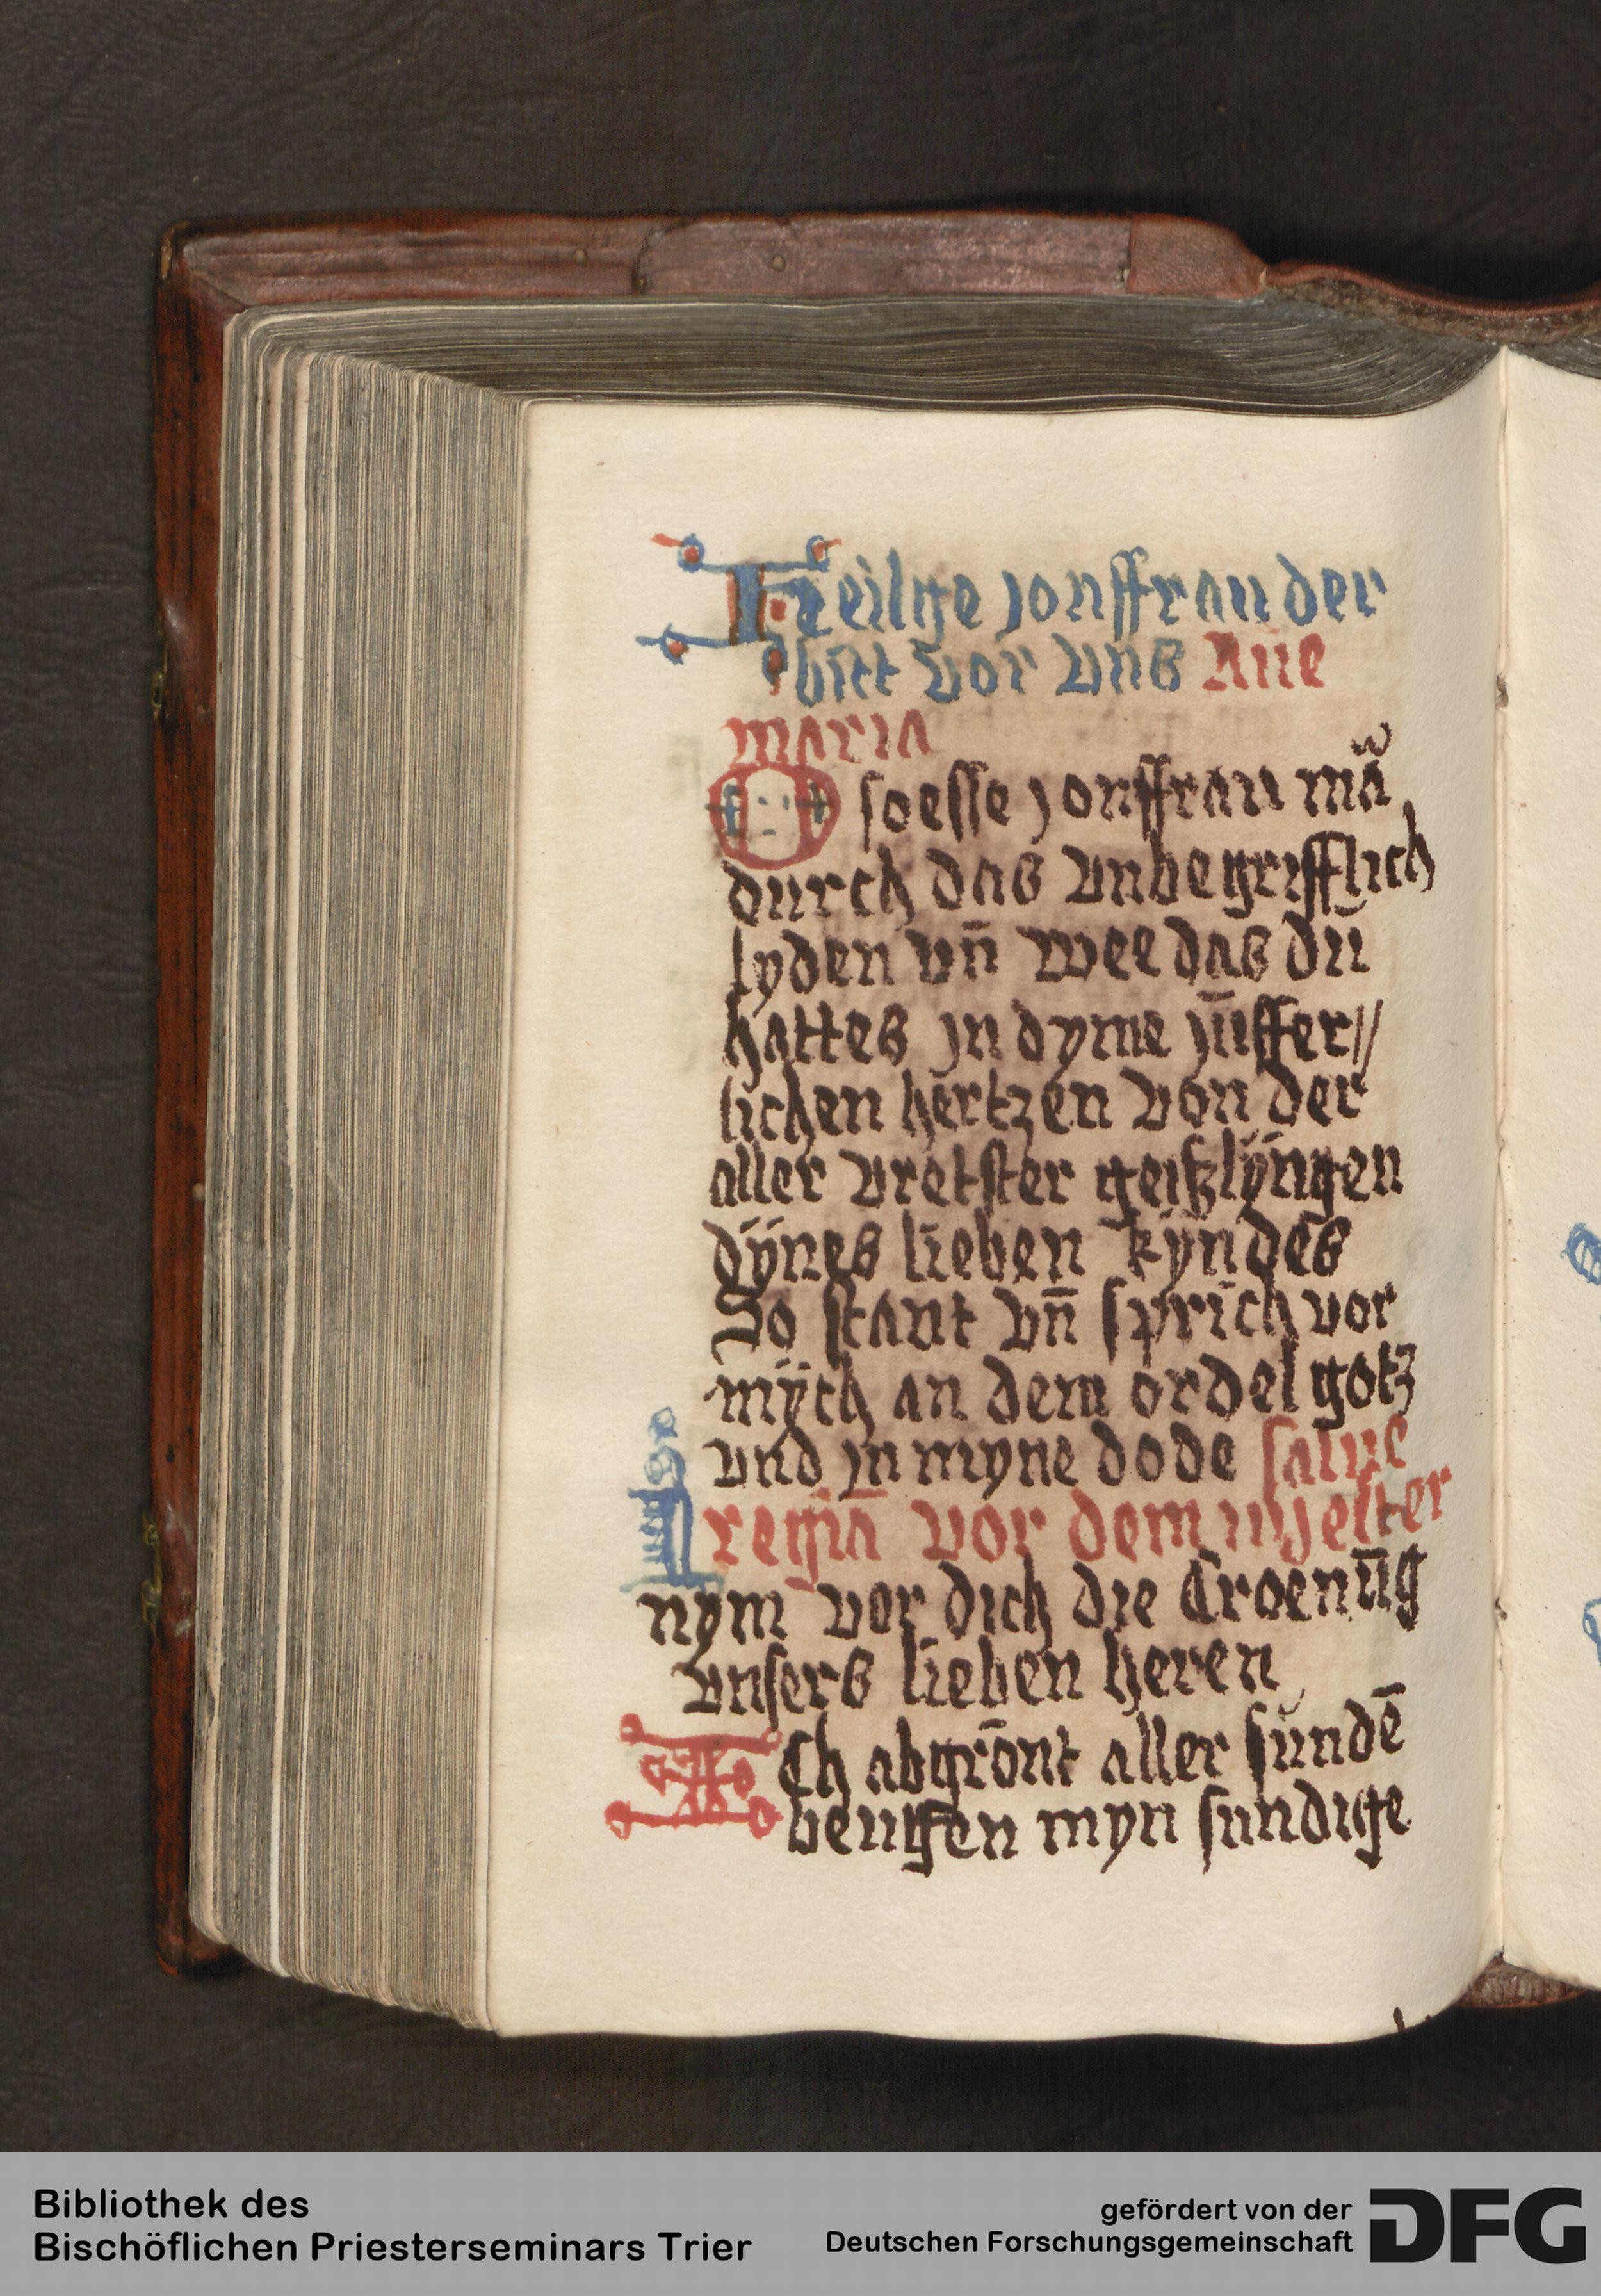 Heilge jonffrau der
bitt vor vnß Aue
maria
O soesse jonffrau mã
durch das vnbegrifflich
lyden vn̄ wee das dū
hattes jn dyme jūffer//
lichen hertzen von der
aller vretster geißlÿngen
dÿnes lieben kÿndes
So stant vn̄ sprich vor
mÿch an dem ordel gotz
vnd jn myne dode salue
regiā vor dem
nym vor dich die Croenūg
vnsers lieben heren
Ach abgrōnt aller sundē
beugfen myn sundige
Bibliothek des
Bischöflichen Priesterseminars Trier
gefördert von der
Deutschen Forschungsgemeinschaft
DFG